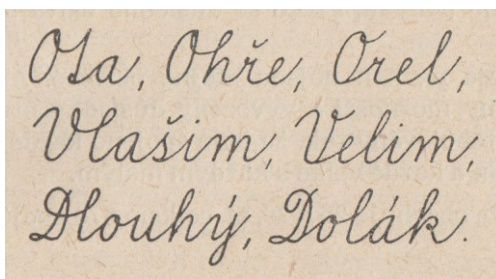 Ota, Ohře, Orel,
Vlašim, Velim,
Dlouhý, Dolák.